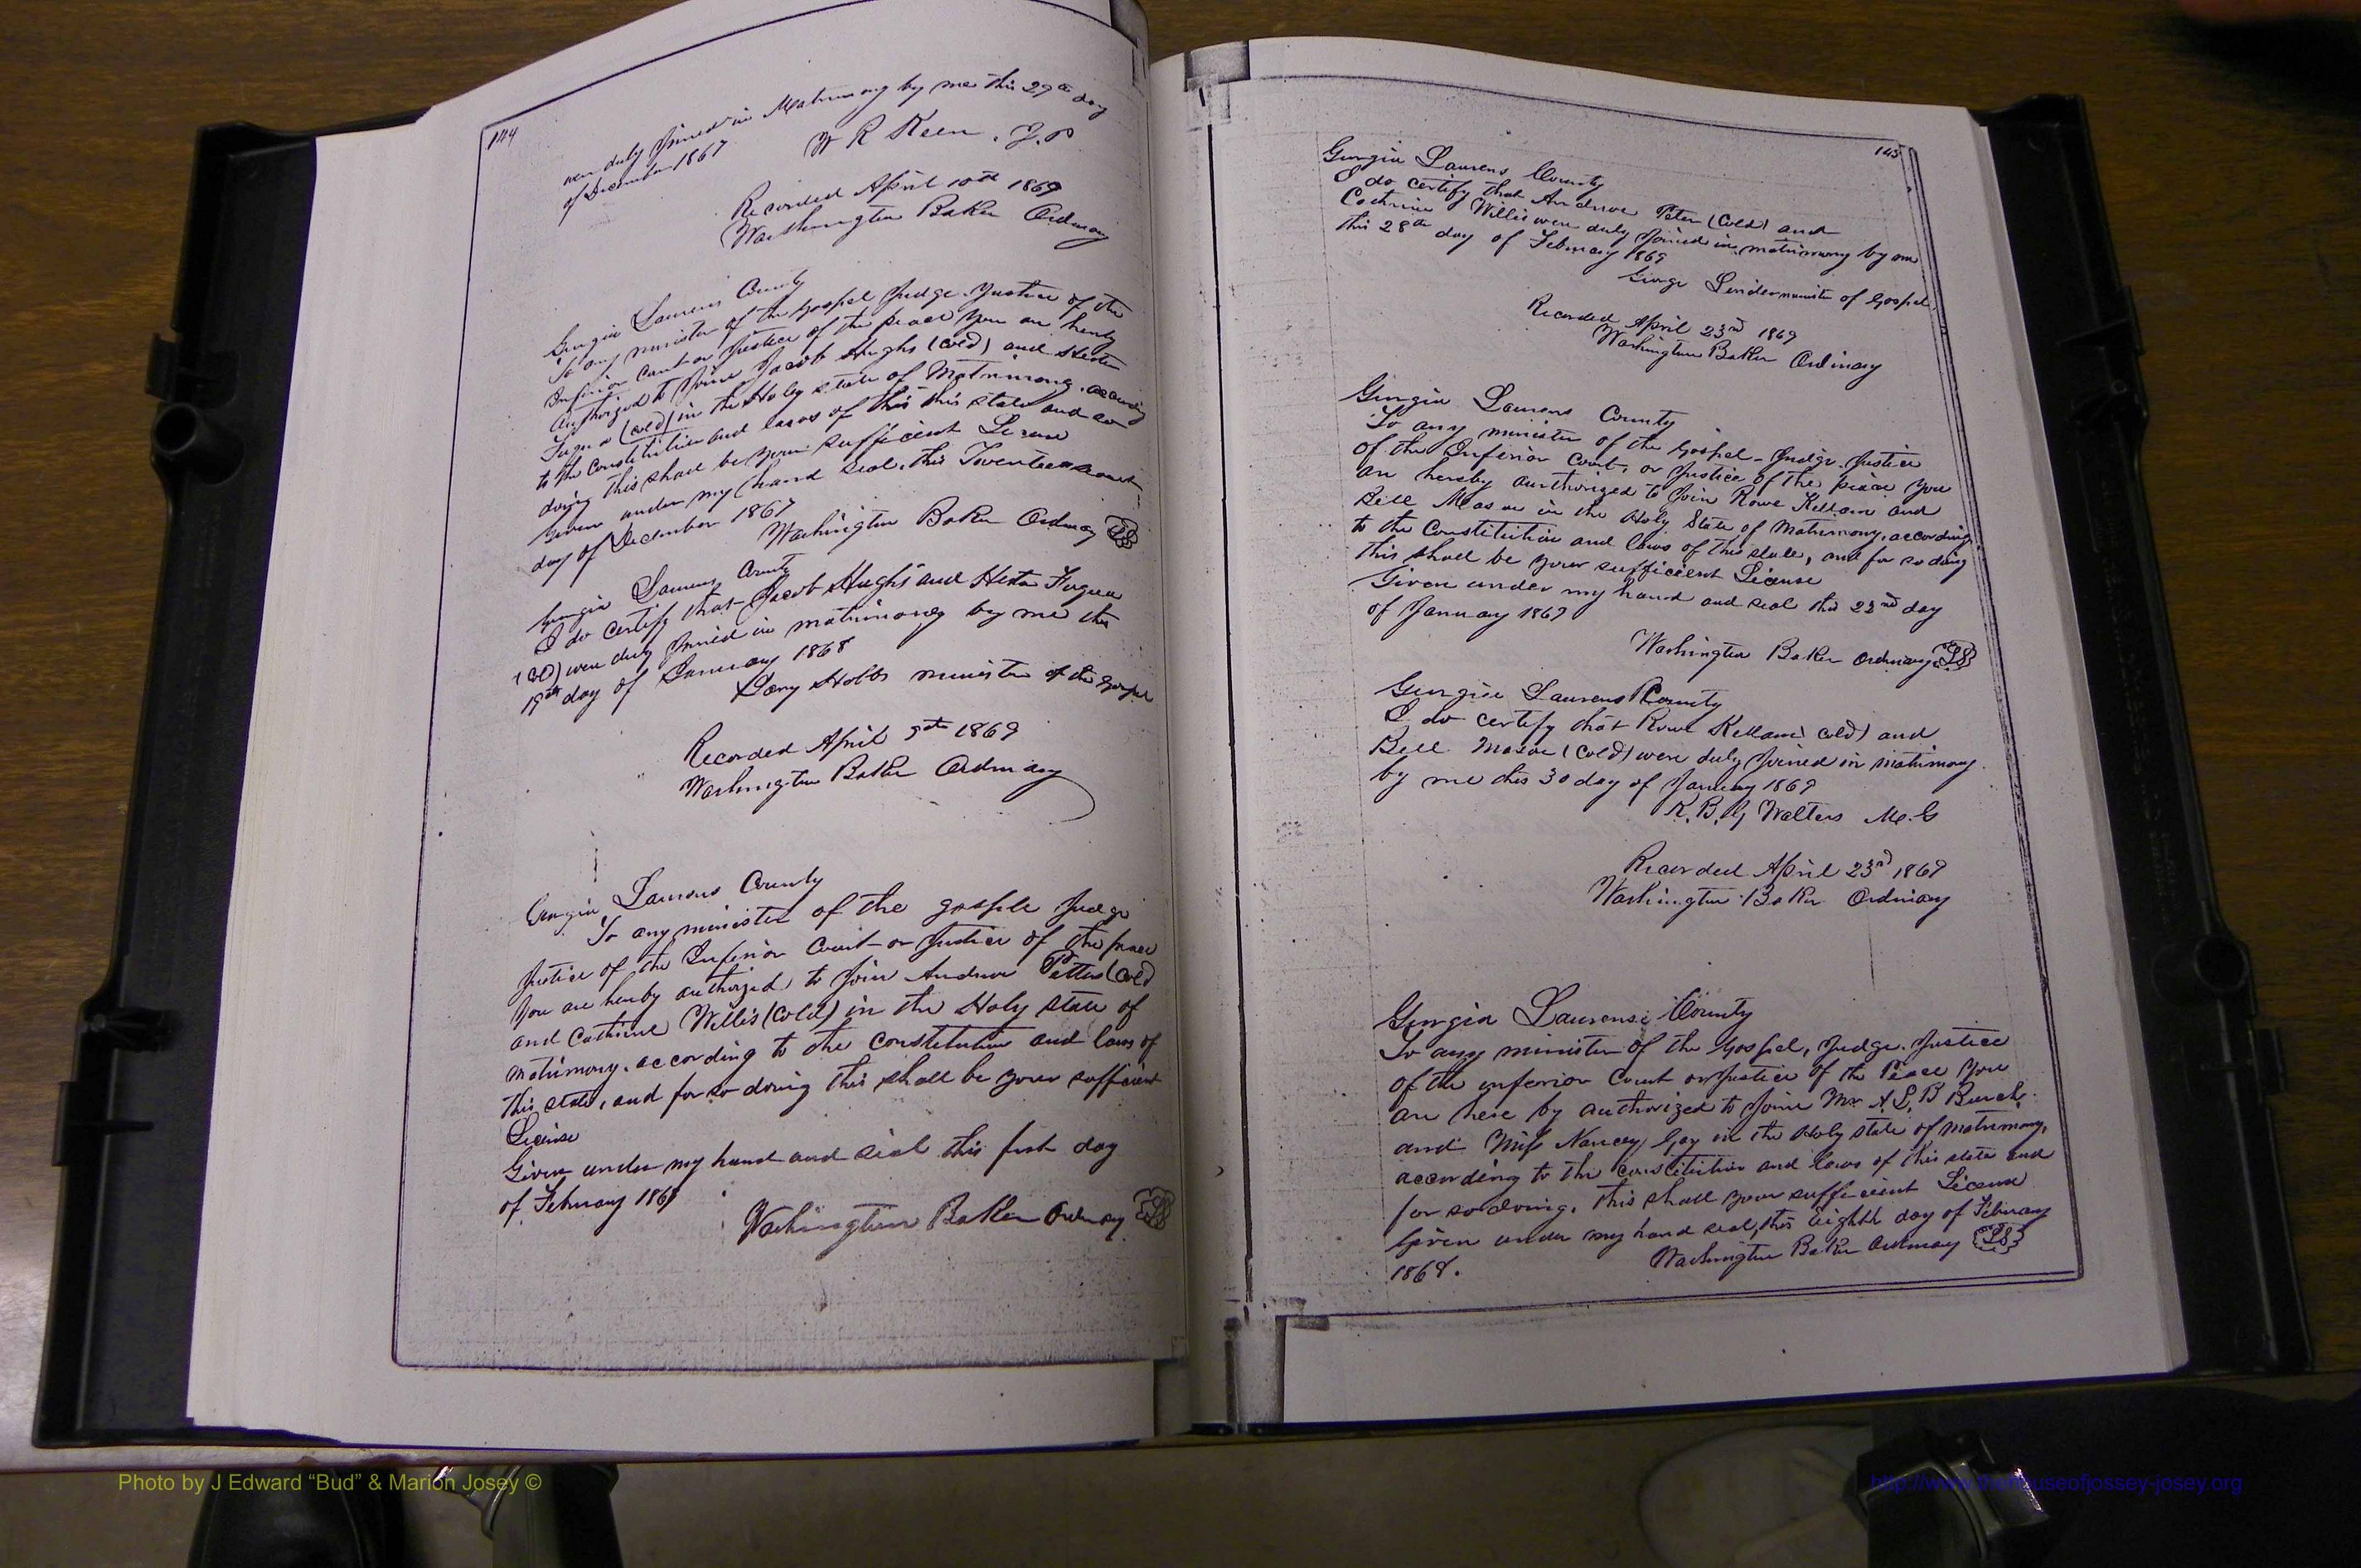 144
were duly joined in Matrimony by me this 29th day
of December 1867
W R Keen. J. P
Recorded April 10th 1869
Washington Baker Ordinary
Georgia Laurens County
To any minister of the Gospel Judge. Justice of the
Inferior Court or Justice of the peace You are hereby
Authorized to Joine Jacob Hughs (Cold) and Hester
(Cold) in the Holy state of Matrimony. according
to the Constitution and laws of this this state and so
doing this shall be your sufficient License
Given under my hand seal. this
day of December 1867
Washington Baker Ordinary LS
Georgia Laurens County
I do certify that Jacob Hughs and Hester
(Cold) were duly Joined in matrimony by me this
19th day of January 1868
Hobbs minister of the Gospel
Recorded April 9th 1869
Washington Baker Ordinary
Georgia Laurens County
To any minister of the gosple Judge
Justice of the Inferior Court or Justice of the peace
You are hereby authorized to Join Andrew Petter (Cold
and Cathrine Willis (Cold) in the Holy state of
matrimony. according to the constitution and laws of
this state, and for so doing this shall be your sufficient
License
Given under my hand and seal this first day
of February 1869
Washington Baker Ordinary LS
145
Georgia Laurens County
I do certify that Andrew Peter (Cold) and
Cathrine Willis were duly Joined in matrimony by me
this 28th day of February 1869
George Linder minister of Gospel
Recorded April 23rd 1869
Washington Baker Ordinary
Georgia Laurens County
To any minister of the Gospel - Judge. Justice
of the Inferior Court, or Justice of the peace You
are hereby authorized to Join Rowe Kellam and
Bell Mason in the Holy State of Matrimony, according
to the Constitution and laws of this state, and for so doing
this shall be your sufficient License
Given under my hand and seal this 22nd day
of January 1869
Washington Baker Ordinary LS
Georgia Laurens County
I do certify that Rowe Kellam (Cold) and
Bell Mason (Cold) were duly Joined in Matrimony
by me this 30 day of January 1869
R. B. Walters M. G
Recorded April 23rd 1869
Washington Baker Ordinary
Georgia Laurens County
To any minister of the Gospel, Judge. Justice
of the inferior Court or Justice of the Peace You
are here by authorized to Joine Mr A. L. B Burch
and Miss Nancey Gay in the Holy state of matrimony,
according to the constitution and laws of this state and
for so doing. this shall your sufficient License
Given under my hand seal, this Eighth day of February
1868.
Washington Baker Ordinary LS
Photo by J Edward “Bud” & Marion Josey ©
http://www.thehouseofjossey-josey.org